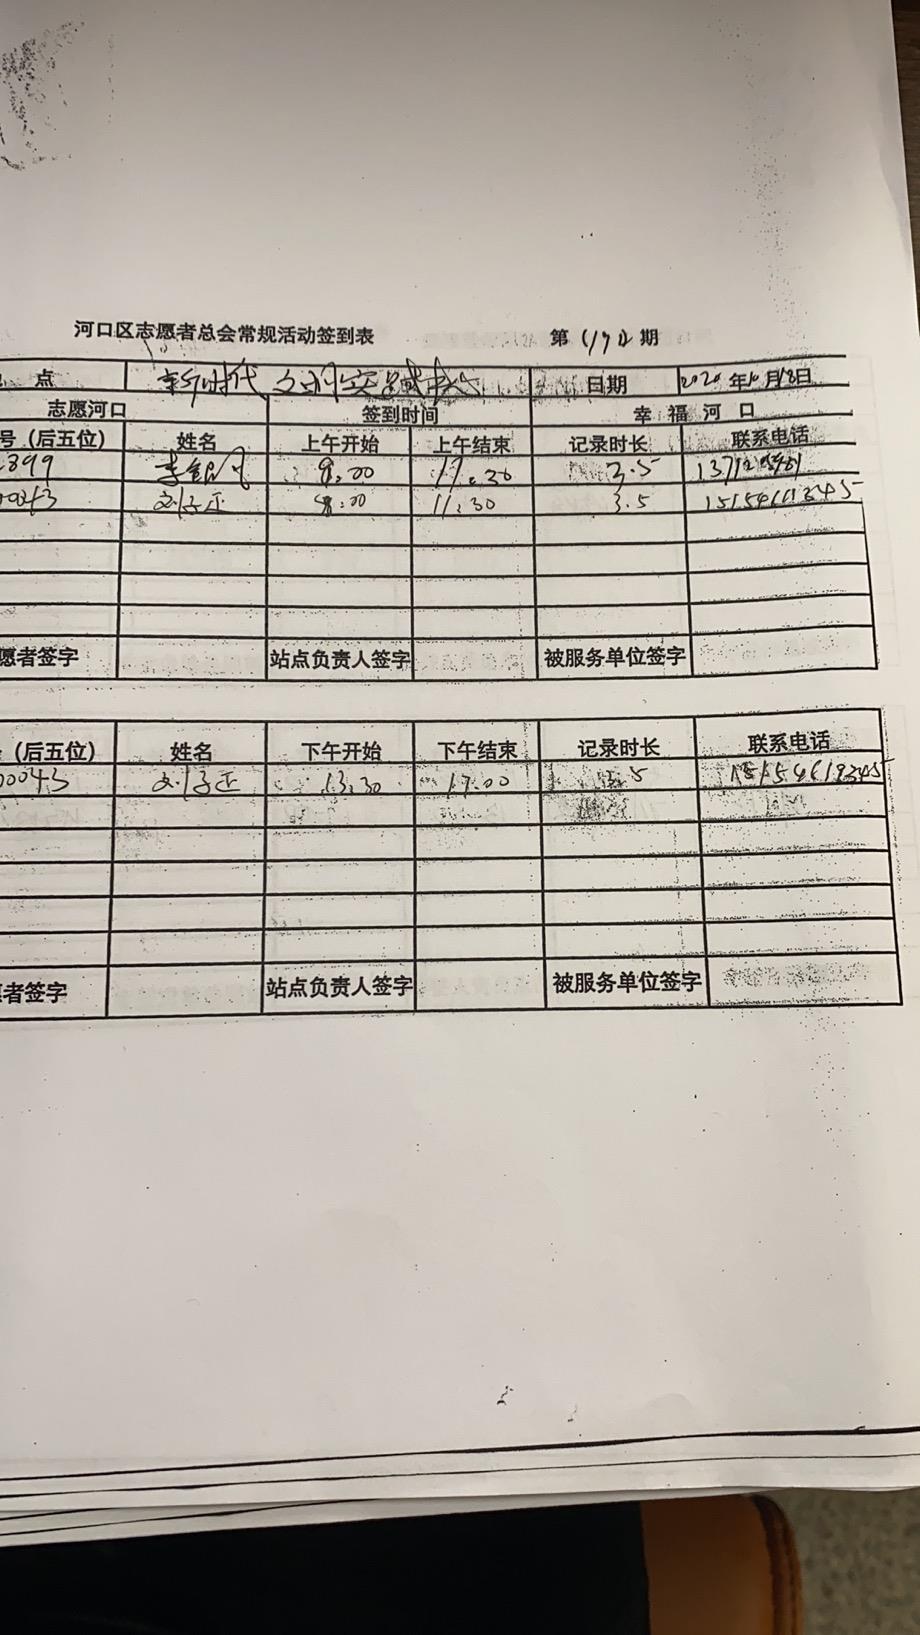 河口区志愿者总会常规活动签到表 第(171)期
点 新时代文明实践中心 日期 2020年10月18日
志愿河口 签到时间 幸福河口
号（后五位） 姓名 上午开始 上午结束 记录时长 联系电话
899 8:00 11:30 3.5
刘子正 8:00 11:30 3.5 15154611345
愿者签字 站点负责人签字 被服务单位签字
（后五位） 姓名 下午开始 下午结束 记录时长 联系电话
00043 刘子正 13:30 17:00 3.5
愿者签字 站点负责人签字 被服务单位签字